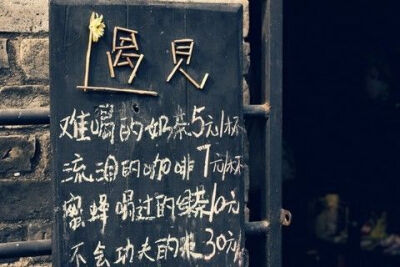 遇見
难喝的奶茶5元/杯
流泪的咖啡7元/杯
蜜蜂喝过的绿茶10元
不会功夫的水30元